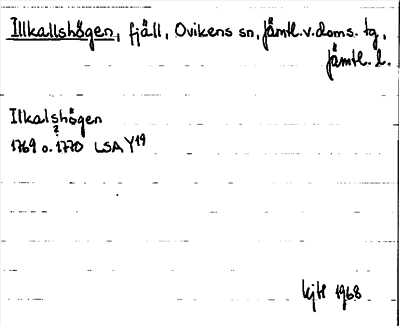 Illkallshögen, fjäll, Ovikens sn, Jämtl.v.doms. tg,
Jämtl. l.
Ilkalshögen
?
1769 o. 1770 LSA Y19
1968